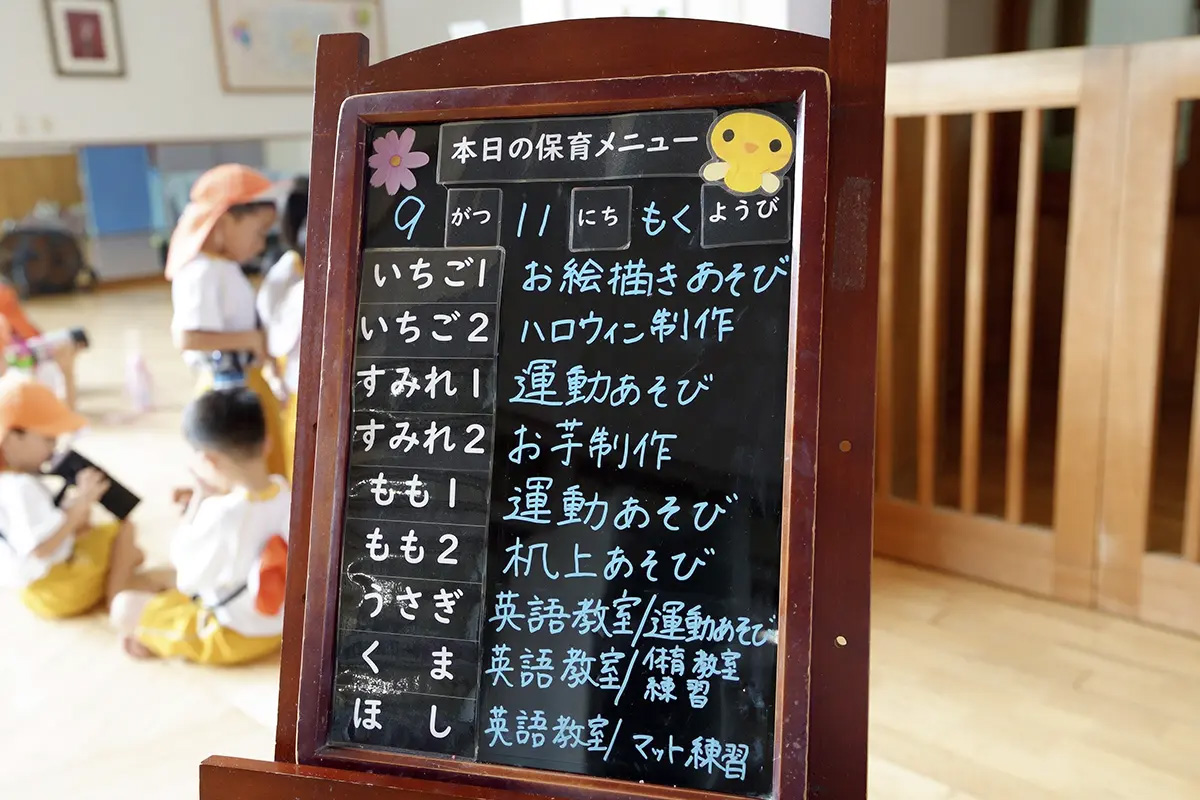 本日の保育メニュー
9 がつ 11 にち もく ようび
いちご1 お絵描きあそび
いちご2 ハロウィン制作
すみれ1 運動あそび
すみれ2 お芋制作
もも1 運動あそび
もも2 机上あそび
うさぎ 英語教室/運動あそび
くま 英語教室/体育教室練習
ほし 英語教室/マット練習